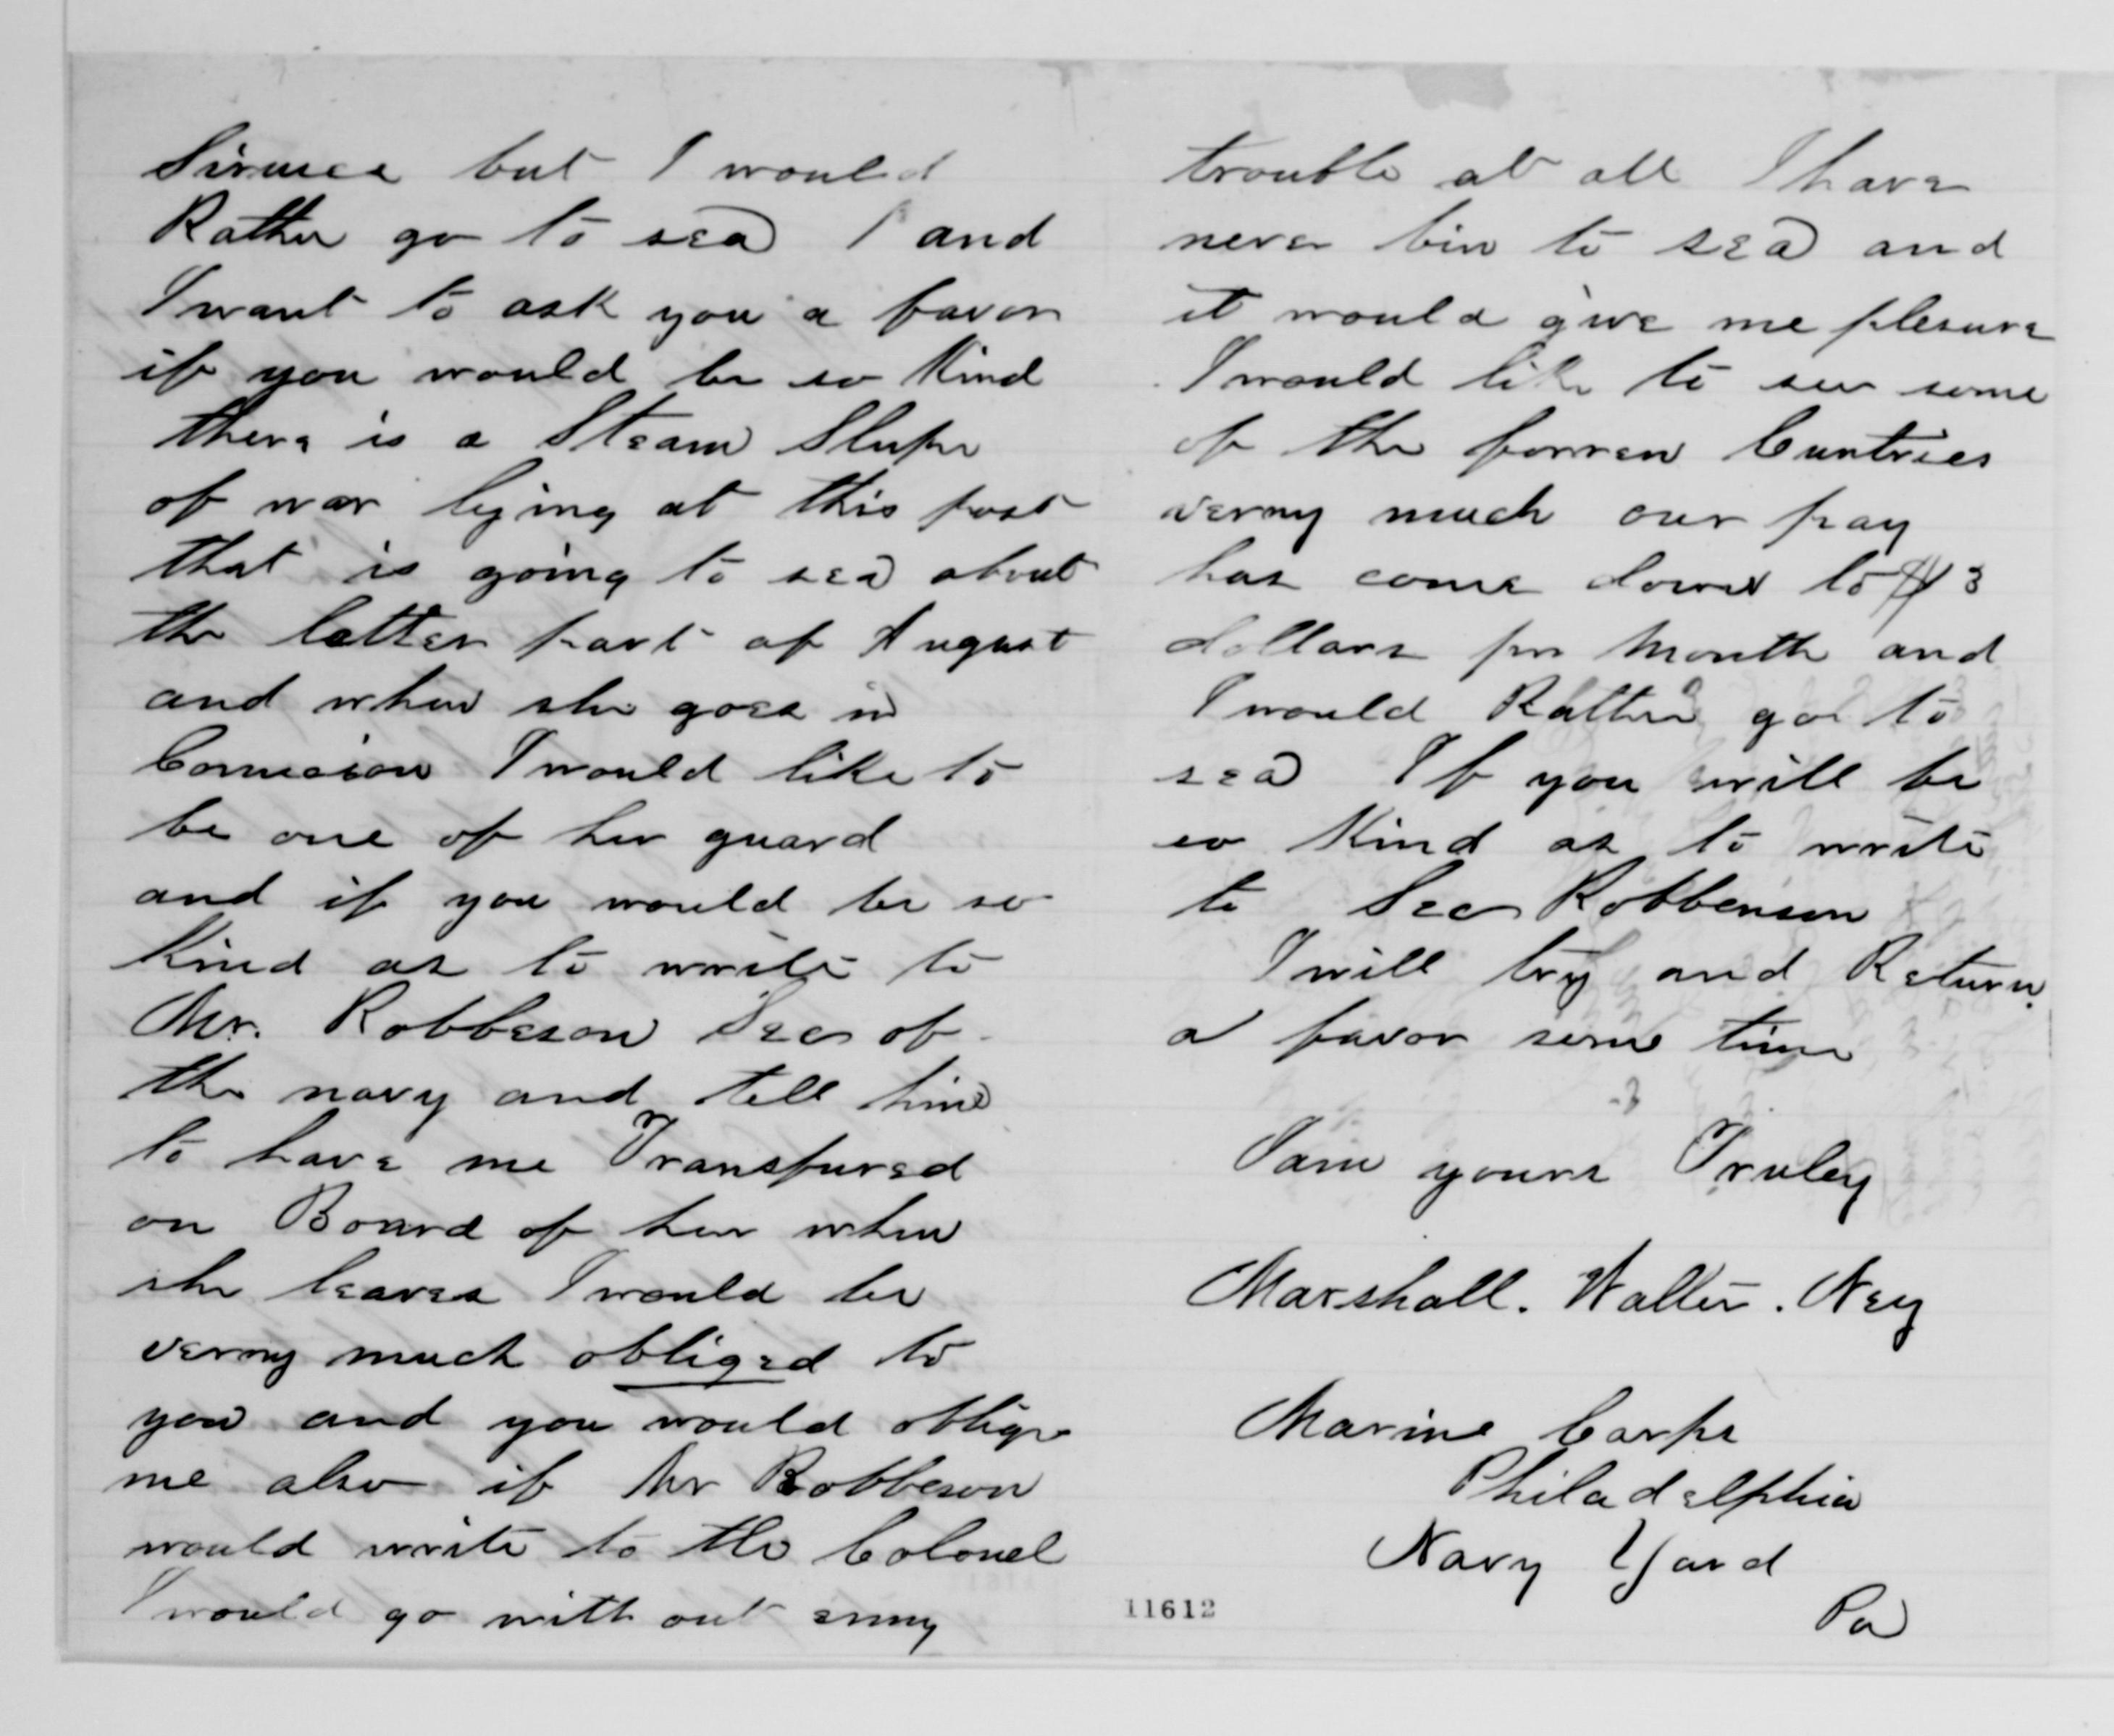 Siruice but I would
Rather go to sea I and
I want to ask you a favor
if you would be so Kind
there is a Steam Slupe
of war lying at this post
that is going to sea about
the letter part of August
and when she goes in
Comission I would like to
be one of her guard
and if you would be so
Kind as to write to
Mr. Robbeson Sec of
the navy and tell him
to have me Transfured
on Board of her when
she leaves I would be
verny much obliged to
you and you would oblige
me also if Mr Robbeson
would write to the Colonel
I would go with out enny
trouble at all I have
never bin to sea and
it would give me plesure
I would like to see some
of the forren Cuntries
verny much our pay
has come down to $13
dollars per Month and
I would Rather go to
sea If you will be
so Kind as to write
to Sec Robbenson
I will try and Return
a favor some time
I am yours Truley
Marshall. Walter. Ney
Marine Corps
Philadelphia
Navy Yard
Pa
11612